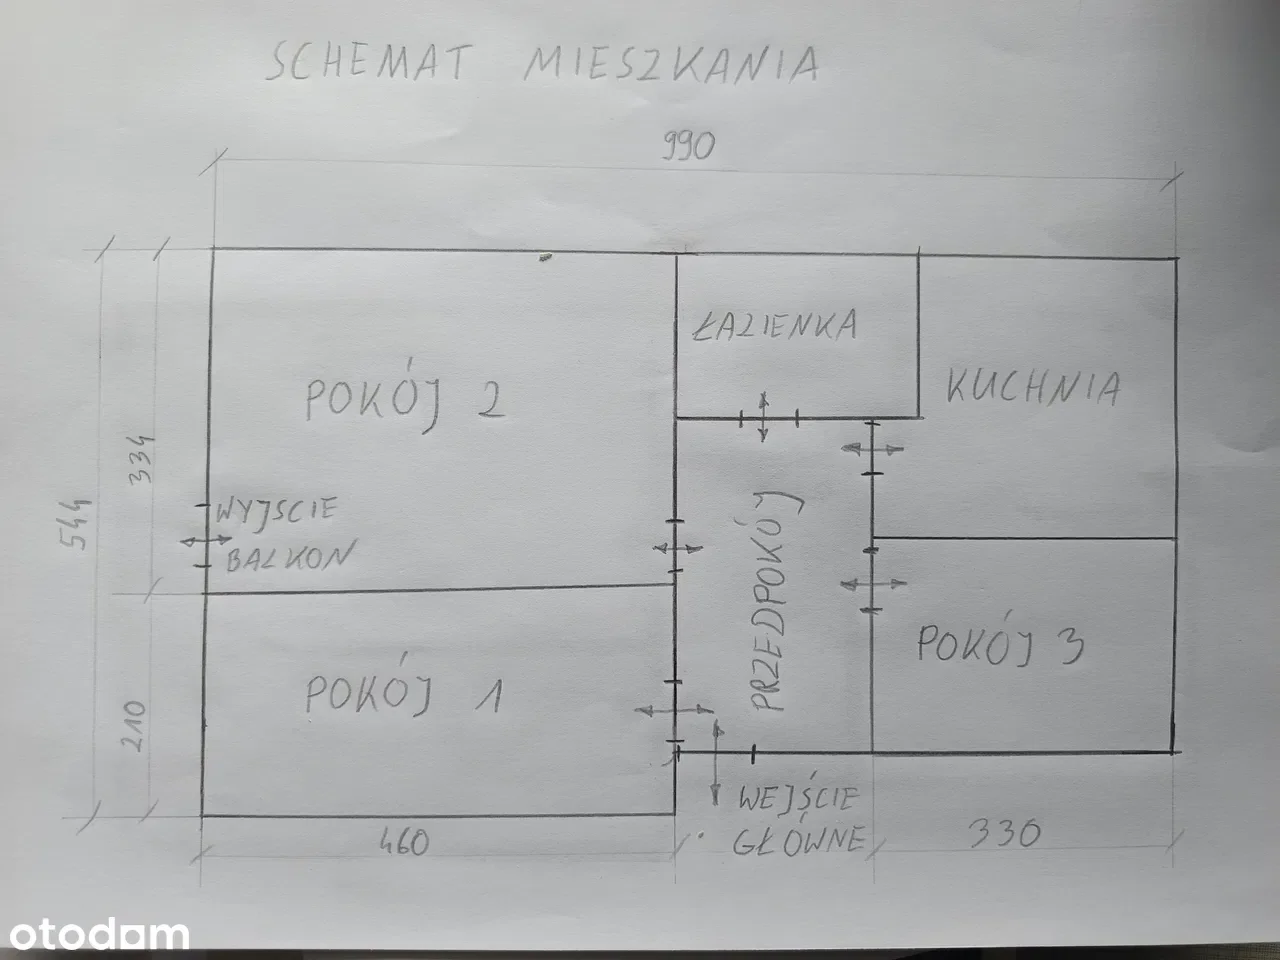 SCHEMAT MIESZKANIA
990
ŁAZIENKA
KUCHNIA
POKÓJ 2
334
544
WYJSCIE
BALKON
PRZEDPOKÓJ
POKÓJ 3
POKÓJ 1
210
WEJŚCIE
GŁÓWNE
460
330
otodom